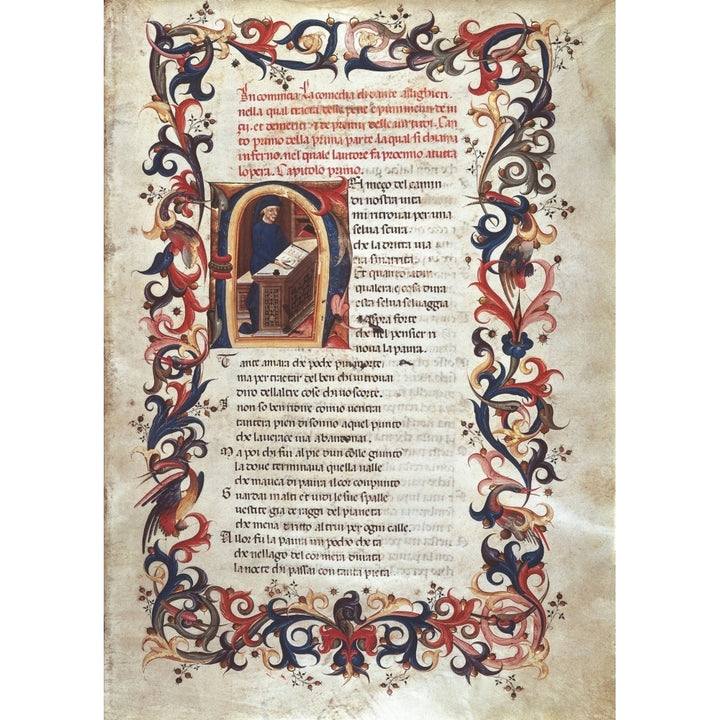 Incomincia la comedia di dante allighieri.
nella qual tracta delle pene e punimenti de
et demeriti. de premii delle virtuti. Can
to primo della prima parte la qual si chiama
inferno. nel quale lautore fa proemio a tutta
lopera. Capitolo primo.
Nel mezo del camin
di nostra vita
mi ritrovai per una
selva scura
che la diritta via
era smarrita
Et quanto a dir
qual era e cosa dura
esta selva selvaggia
aspra forte
che nel pensier ri
nova la paura.
Tante amara che poche piu morte
ma per tractar del ben chi vi trovai
diro dellaltre cose chi vo scorte.
I non so ben ridire como ventrai
tantera pien di sonno a quel punto
che la verace via abandonai.
Ma poi chi fui al pie dun colle giunto
la dove terminava quella valle
che mavea di paura il cor conpunto
Guardai in alti et vidi le sue spalle
vestite gia de raggi del pianeta
che mena diritto altrui per ogni calle.
Allor fu la paura un pocho cheta
che nel lago del cor mera durata
la nocte chi passai con tanta pieta